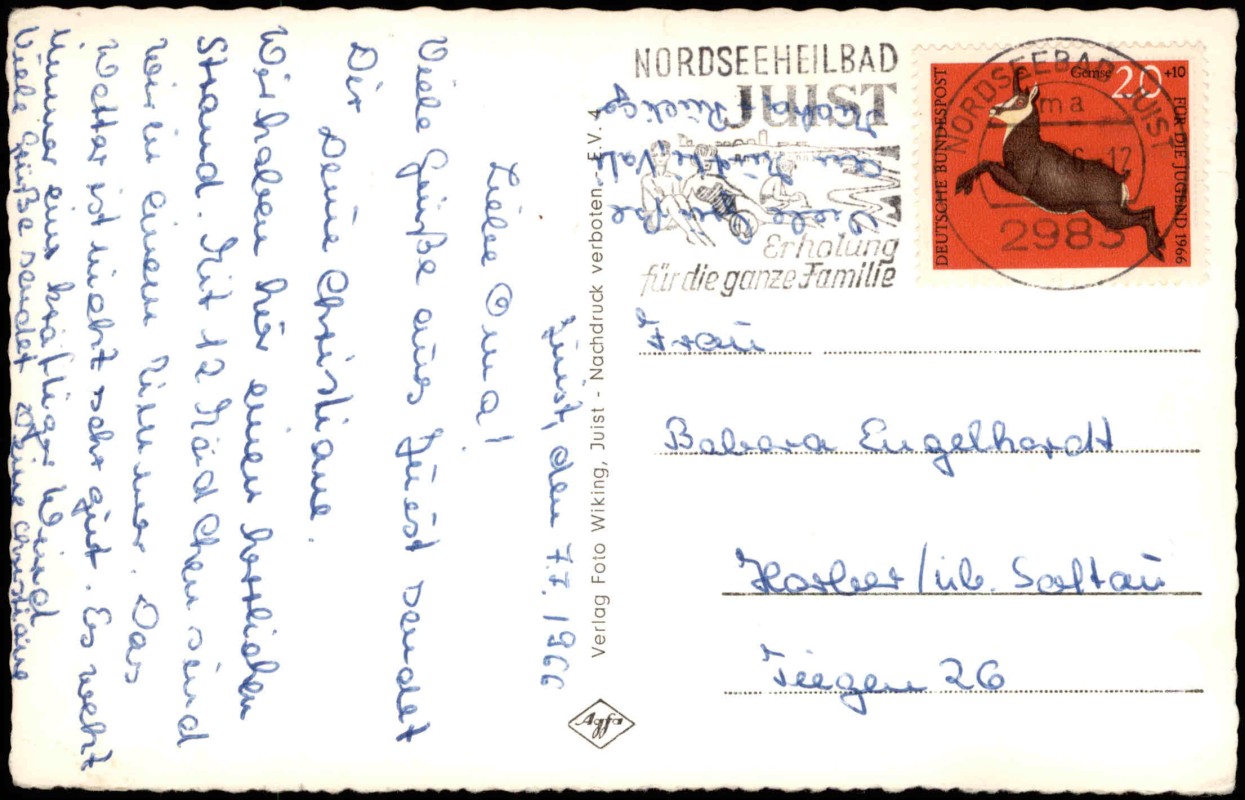 Juist, den 7.7.1966
Liebe Oma!
Viele Grüße aus Juist sendet
Dir Deine Christiane.
Wir haben hier einen herrlichen
Strand. Mit 12 Mädchen sind
wir in einem Zimmer. Das
Wetter ist nicht sehr gut. Es weht
immer ein kräftiger Wind
Viele Grüße sendet Deine Christiane
Verlag Foto Wiking, Juist - Nachdruck verboten - E.V. 4
Agfa
NORDSEEHEILBAD
JUIST
Erholung
für die ganze Familie
Viele Grüße
NORDSEEBAD JUIST
ma
12
2983
DEUTSCHE BUNDESPOST
Gemse 20 +10
FÜR DIE JUGEND 1966
Frau
Babara Engelhardt
Harber/üb. Soltau
Tiegen 26